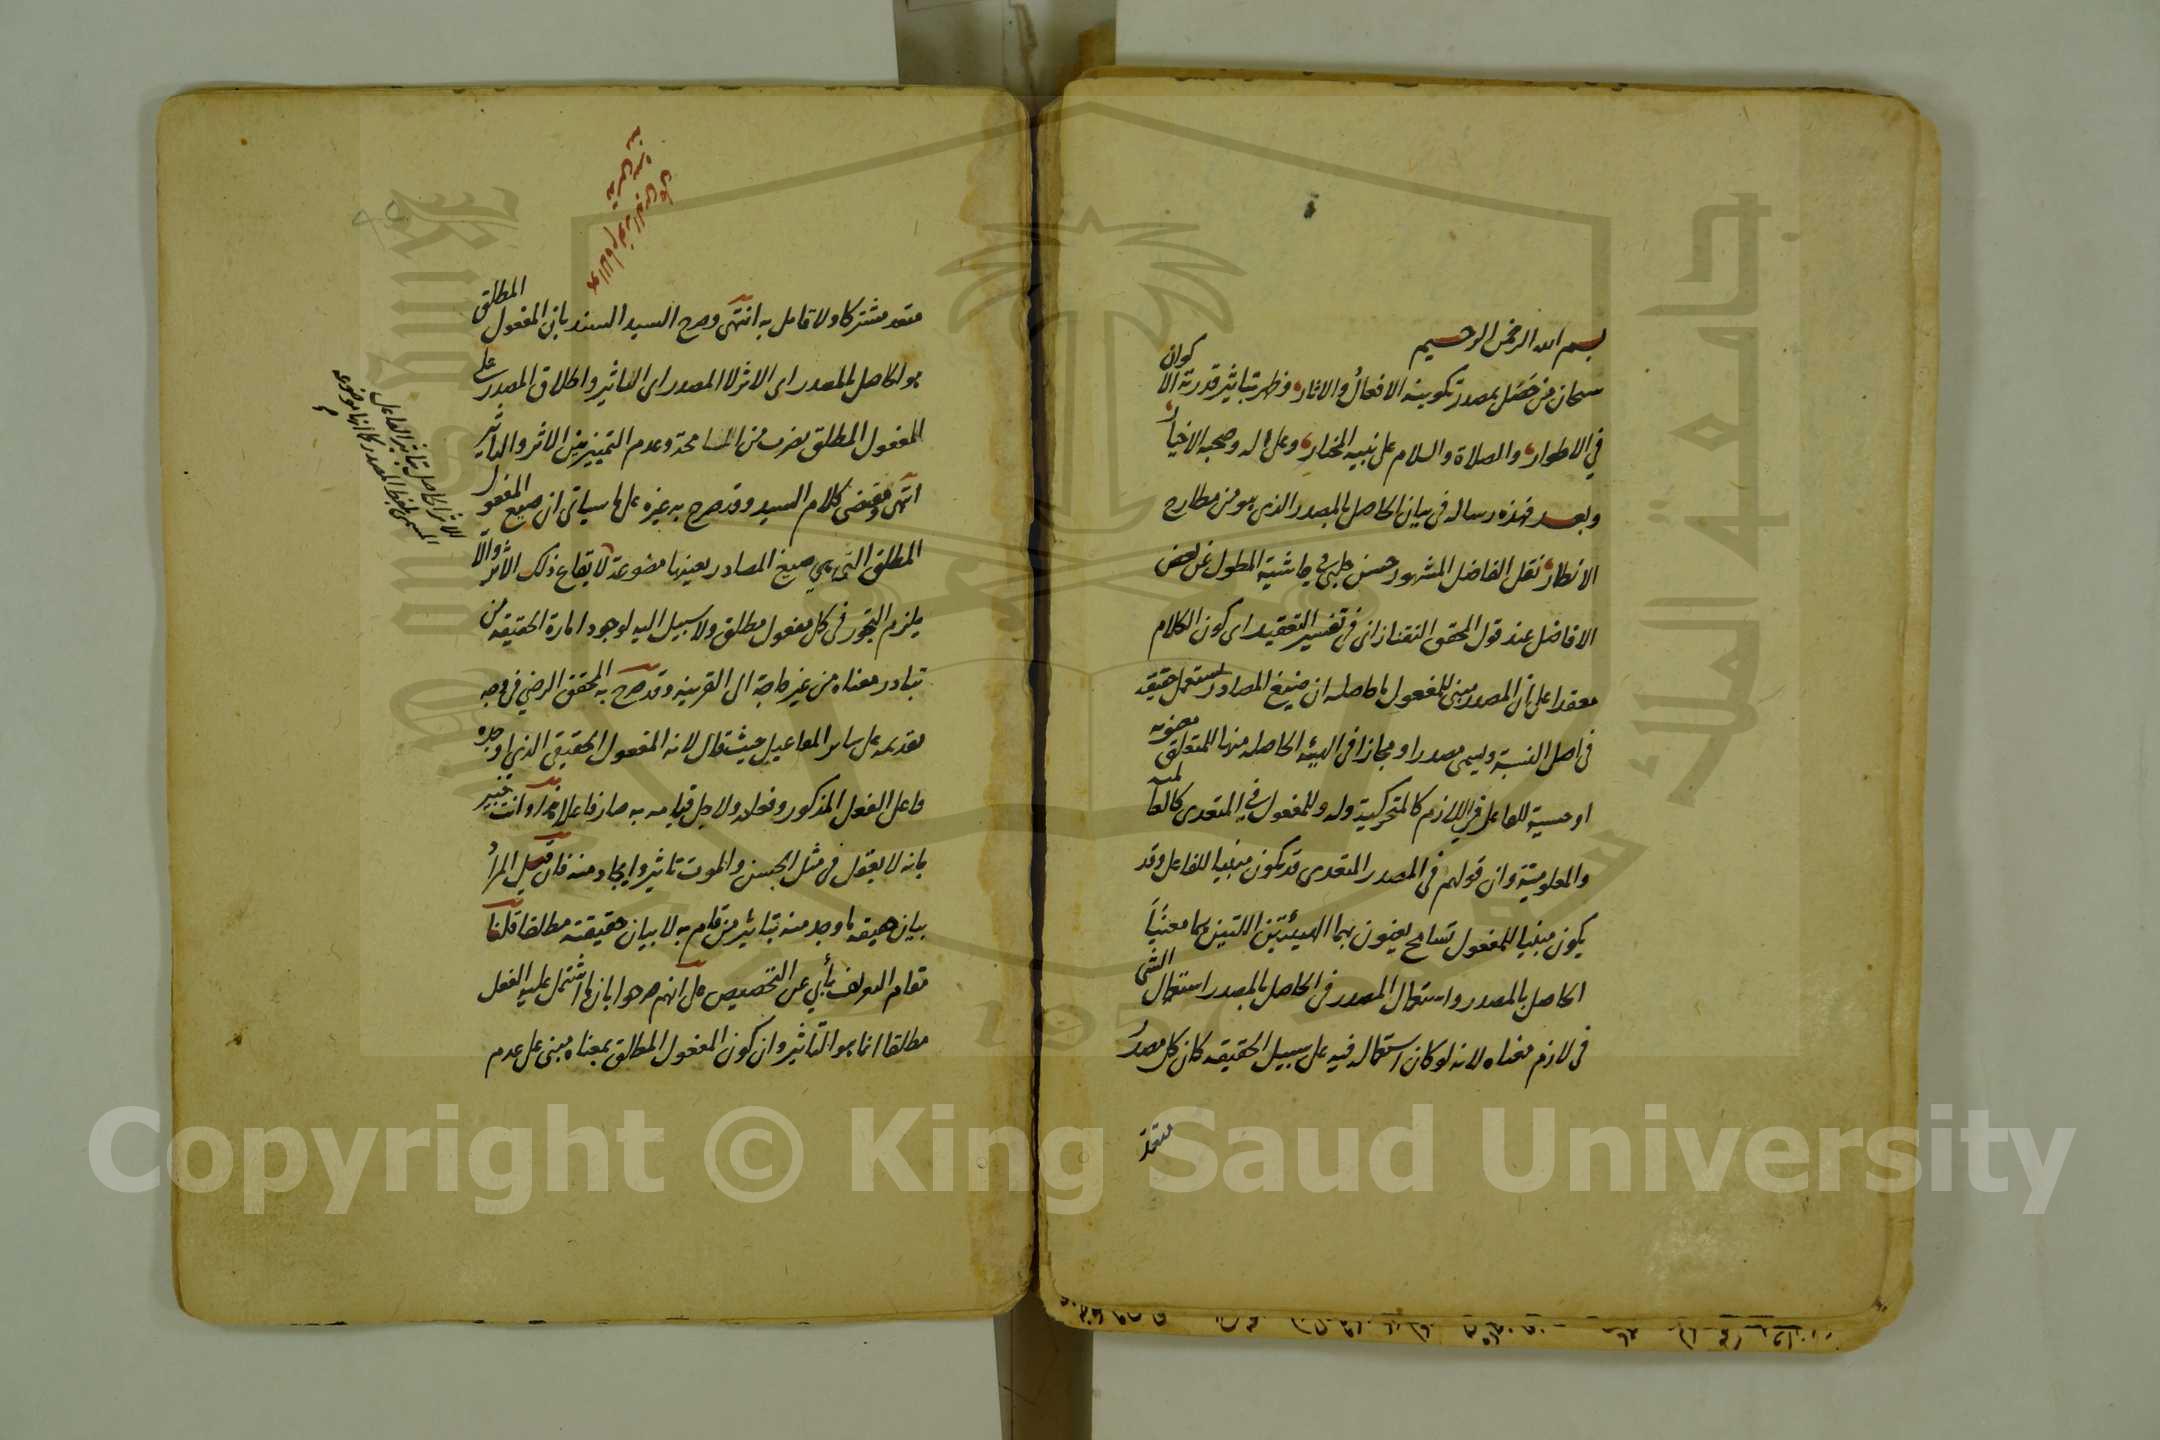 بسم الله الرحمن الرحيم
سبحان من حصل بمصدر تكوينه الافعال والاثار وظهر بتاثير قدرته الاكوان
في الاطوار والصلاة والسلام على نبيه المختار وعلى اله وصحبه الاخيار
وبعد فهذه رساله في بيان الحاصل بالمصدر الذي هو من مطارح
الانظار نقل الفاضل المشهور حسن چلبي في حاشية المطول عن بعض
الافاضل عند قول المحقق التفتازاني في تفسير التعقيد اي كون الكلام
معقدا على ان المصدر مبني للمفعول ما حاصله ان صيغ المصادر تستعمل حقيقة
في اصل النسبة ويسمى مصدرا ومجازا في الهيئه الحاصله منها للمتعلق معنويه
او حسية للفاعل في اللازم كالمتحركية وله وللمفعول في المتعدي كالعالمية
والمعلومية وان قولهم في المصدر المتعدي قد يكون مبنيا للفاعل وقد
يكون مبنيا للمفعول تسامح يعنون بهما الهيئتين اللتين هما معنيا
الحاصل بالمصدر واستعمال المصدر في الحاصل بالمصدر استعمال الشئ
في لازم معناه لانه لو كان استعماله فيه على سبيل الحقيقه كان كل مصدر
متعد
متعد مشتركا ولا قايل به انتهى وصرح السيد السند بان المفعول المطلق
هو الحاصل بالمصدر اي الاثر لا المصدر اي التاثير واطلاق المصدر على
المفعول المطلق بضرب من المسامحة وعدم التمييز بين الاثر والتاثير
انتهى ومقتضى كلام السيد وقد صرح به غيره على ما سياتي ان صيغ المفعول
المطلق التي هي صيغ المصادر بعينها موضوعة لايقاع ذلك الاثر والا
يلزم التجوز في كل مفعول مطلق ولا سبيل اليه لوجود امارة الحقيقه من
تبادر معناه من غير حاجة الى القرينه وقد صرح به المحقق الرضي في وجه
تقديمه على ساير المفاعيل حيث قال لانه المفعول الحقيقي الذي اوجده
فاعل الفعل المذكور وفعله ولاجل قيامه به صار فاعلا وانت خبير
بانه لا يعقل في مثل الحسن والموت تاثير وايجاد منه فان قيل المراد
بيان حقيقه ما وجد منه بتاثير من قام به لا بيان حقيقته مطلقا قلنا
مقام التعريف يأبى عن التخصيص على انهم صرحوا بان ما اشتمل عليه الفعل
مطلقا انما هو التاثير وان كون المفعول المطلق بمعناه مبني على عدم
Copyright © King Saud University
جامعة الملك سعود
1957